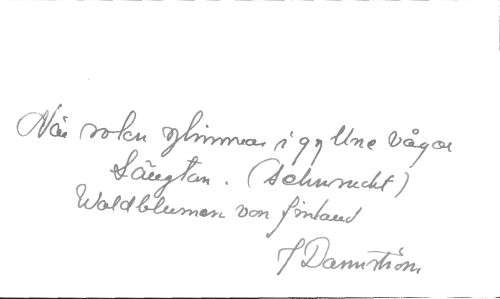 När solen glimmar i gyllne vågor
Längtan. (Sehnsucht)
Waldblumen von Finland
J Dannström